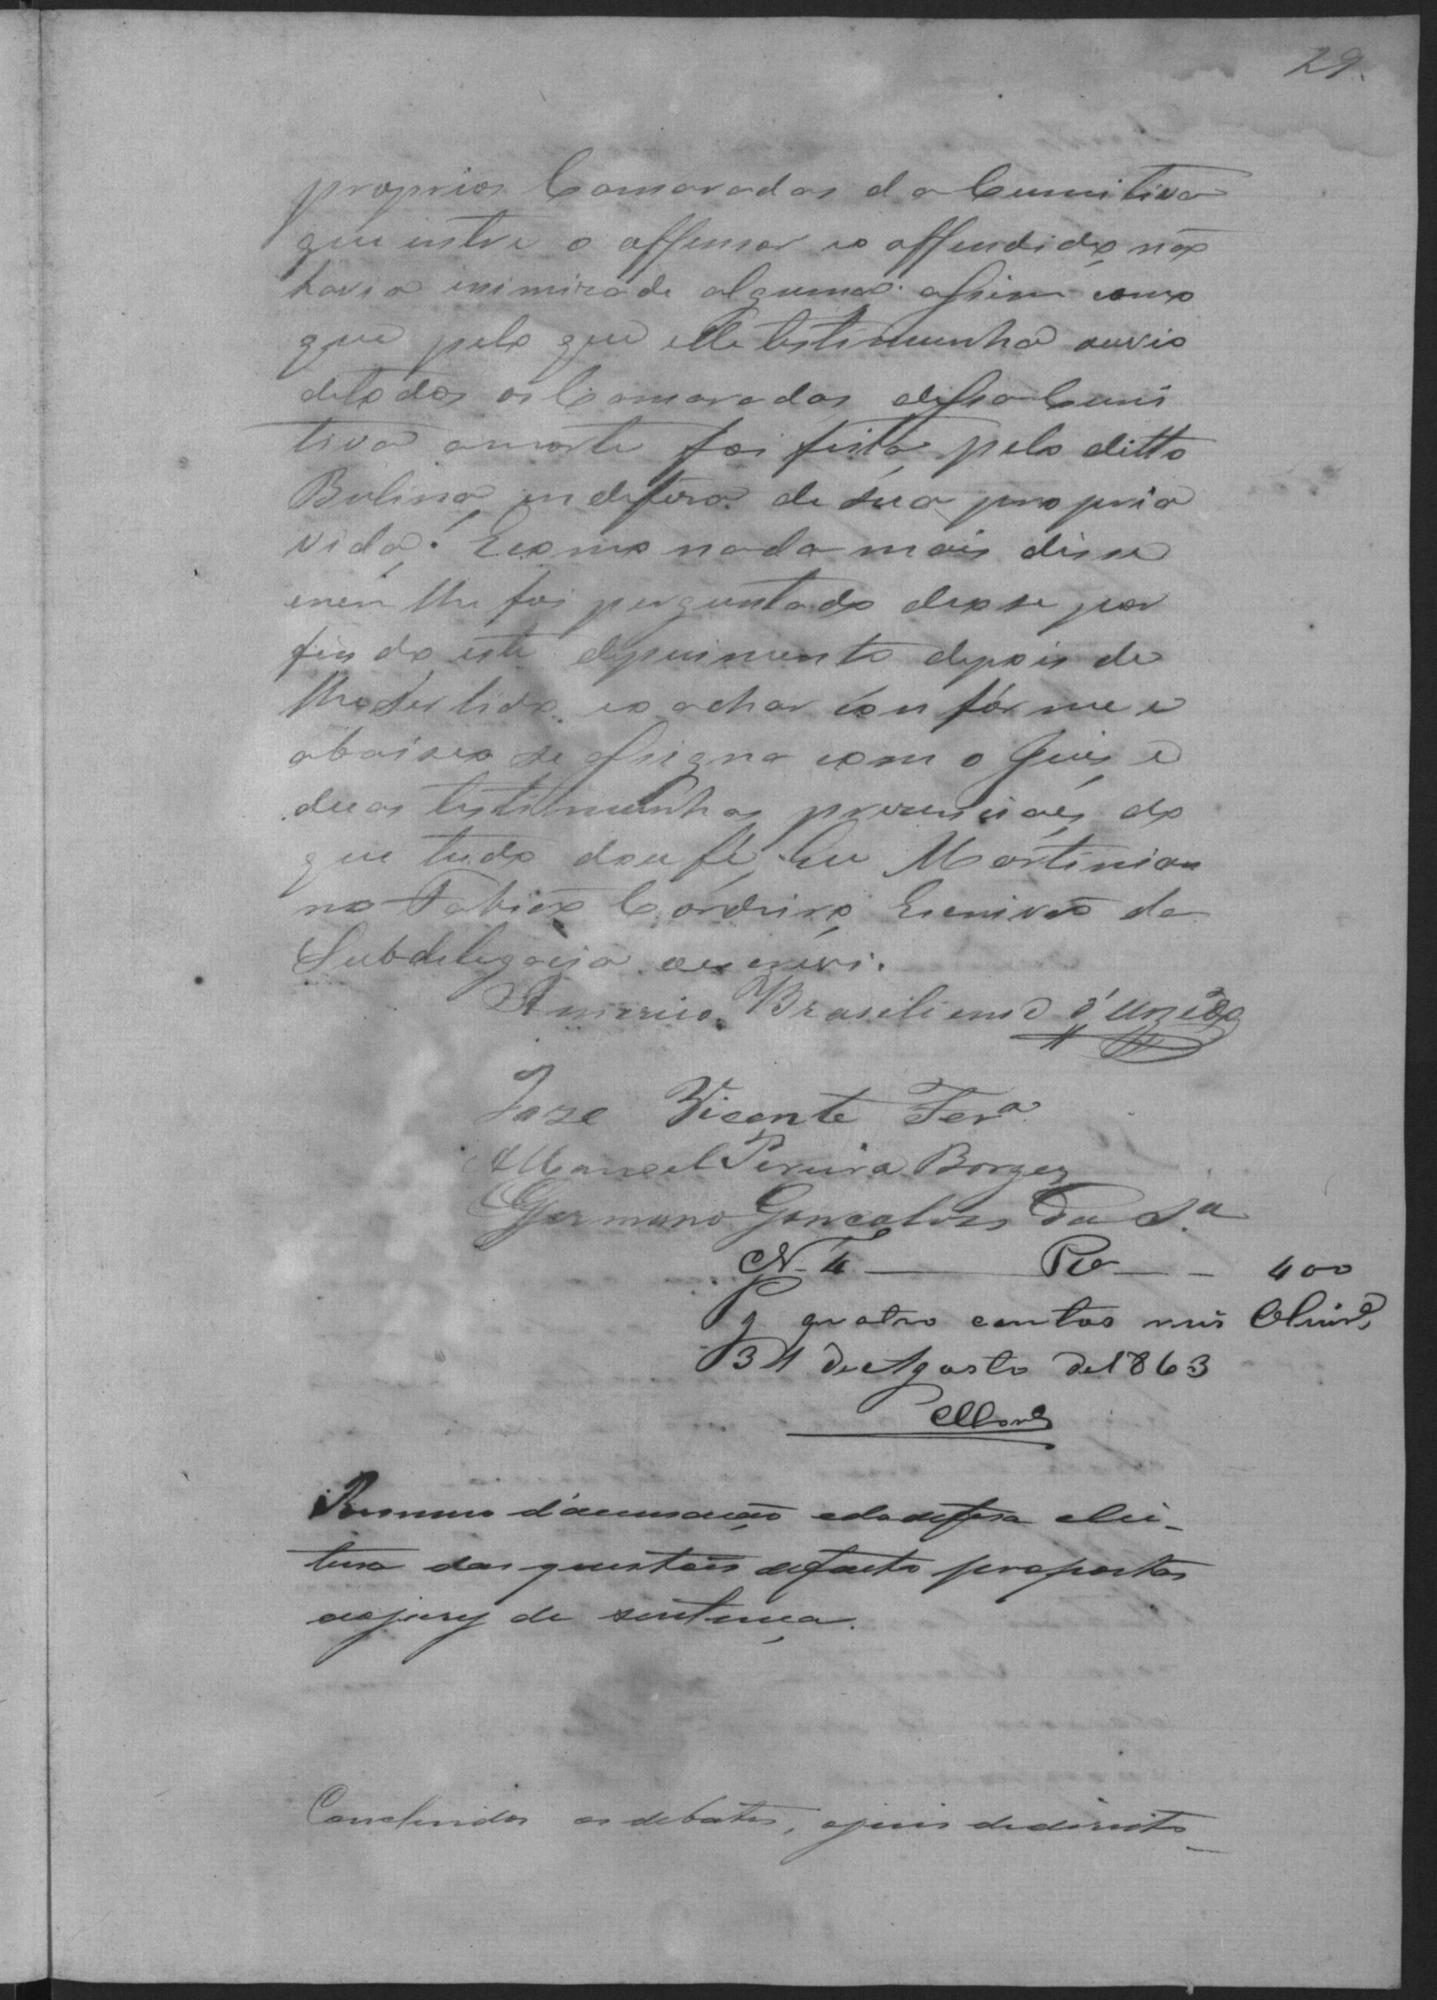 29.
proprios Camaradas da Cumitiva
que entre o offensor eo offendido não
havia inimizade alguma. assim como
que pelo que elle testimunha ouvio
detodos os Camaradas dessa Cumi
tiva amorte foi feita pelo ditto
Bulina, em defesa de sua propria
vida. Ecomo nada mais disse
enem lhe foi perguntado deose por
findo este depuimento depois de
lhe ser lido, eo achar conforme e
abaixo se assigna com o Juis e
duas testimunhas prezenciaes do
que tudo dou fé. Eu Martinia
no Fabião Cordeiro, Escrivão da
Subdelegacia oescrevi.
Americo Brasiliense d'
Joze Vicente Ferª
Manoel Pereira Borges
Germano Goncalves da Sª
N. 4 — Rs — 400
Pg quatro centos reis
31 de Agosto de 1863
Resumo d'accusação edadefesa elei-
tura das questões defacto propostas
aojury de sentença.
Concluidos os debates, ojuis dedireito